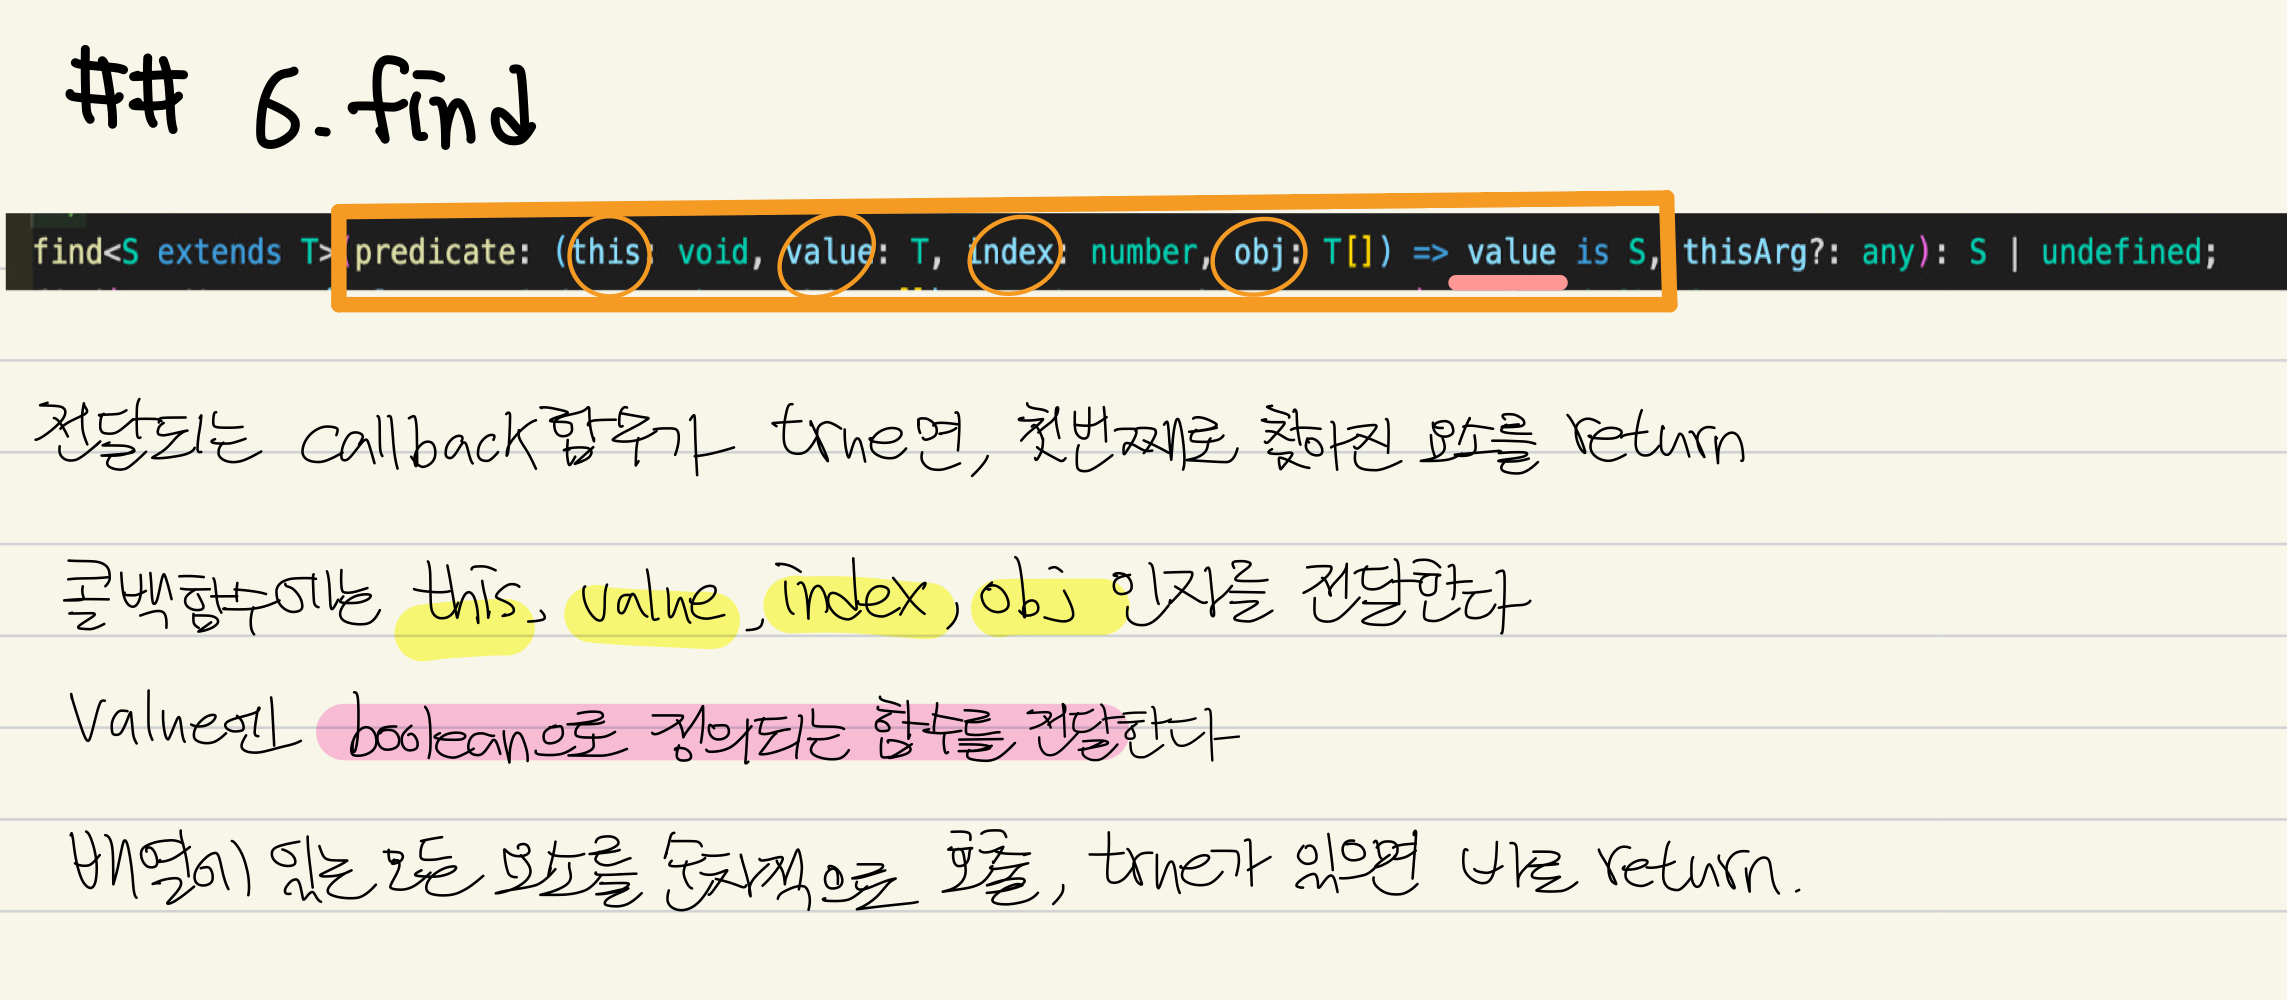 ## 6. find
find<S extends T>(predicate: (this: void, value: T, index: number, obj: T[]) => value is S, thisArg?: any): S | undefined;
전달되는 callback함수가 true면, 첫번째로 찾아진 요소를 return
콜백함수에는 this, value, index, obj 인자를 전달한다
Value엔 boolean으로 정의되는 함수를 전달한다
배열에 있는 모든 요소를 순차적으로 호출, true가 있으면 바로 return.